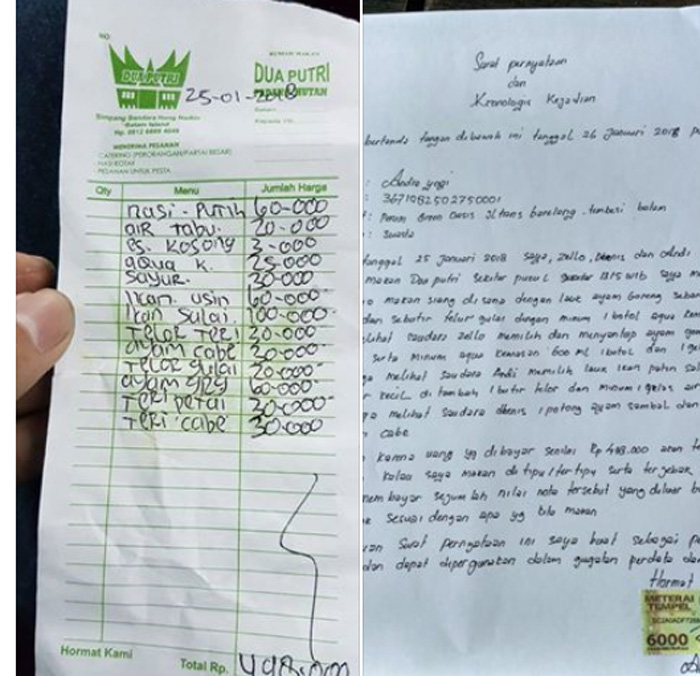 NO
DUA PUTRI
RUMAH MAKAN
DUA PUTRI
25-01-2018
Simpang Bandara Hang Nadim
Batam Island
Hp. 0812 6689 4049
Kepada Yth.
MENERIMA PESANAN
CATERING (PERORANGAN/PARTAI BESAR)
NASI KOTAK
PESANAN UNTUK PESTA
Qty Menu Jumlah Harga
nasi - Putih 60-000
aiR Tabu. 20-000
es. Kosong 3-000
aqua K. 25-000
sayur. 30-000
Ikan. asin 60-000
Ikan Sulai 100-000
TeLor Teri 30-000
ayam cabe 30-000
TeLor gulai 20-000
60-000
TeRi petai 30-000
TeRi cabe 30-000
Hormat Kami Total Rp. 498.000
Surat pernyataan
dan
Kronologis Kejadian
bertanda tangan dibawah ini tanggal 26 Januari 2018
: Andra yogi
: 3671082502750001
: Perum Green Oasis Jl trans barelang tembesi batam
: Swasta
tanggal 25 Januari 2018 saya, Zello, Dennis dan Andi
makan Dua putri sekitar pukul 13:15 wib saya
makan siang di sana dengan lauk ayam Goreng
dan sebutir telur gulai dengan minum 1 botol aqua
melihat saudara Zello memilih dan menyantap ayam
serta minum aqua kemasan 600 ml 1 botol dan 1
melihat saudara Andi memilih lauk ikan patin
kecil di tambah 1 butir telor dan minum 1 gelas
melihat saudara dennis 1 potong ayam sambal dan
cabe
karna uang yg dibayar senilai Rp 498.000
kalau saya makan di tipu/tertipu serta terjebak
membayar sejumlah nilai nota tersebut yang diluar
sesuai dengan apa yg kita makan
surat pernyataan ini saya buat sebagai
dan dapat dipergunakan dalam gugatan perdata
Hormat
METERAI
TEMPEL
6000